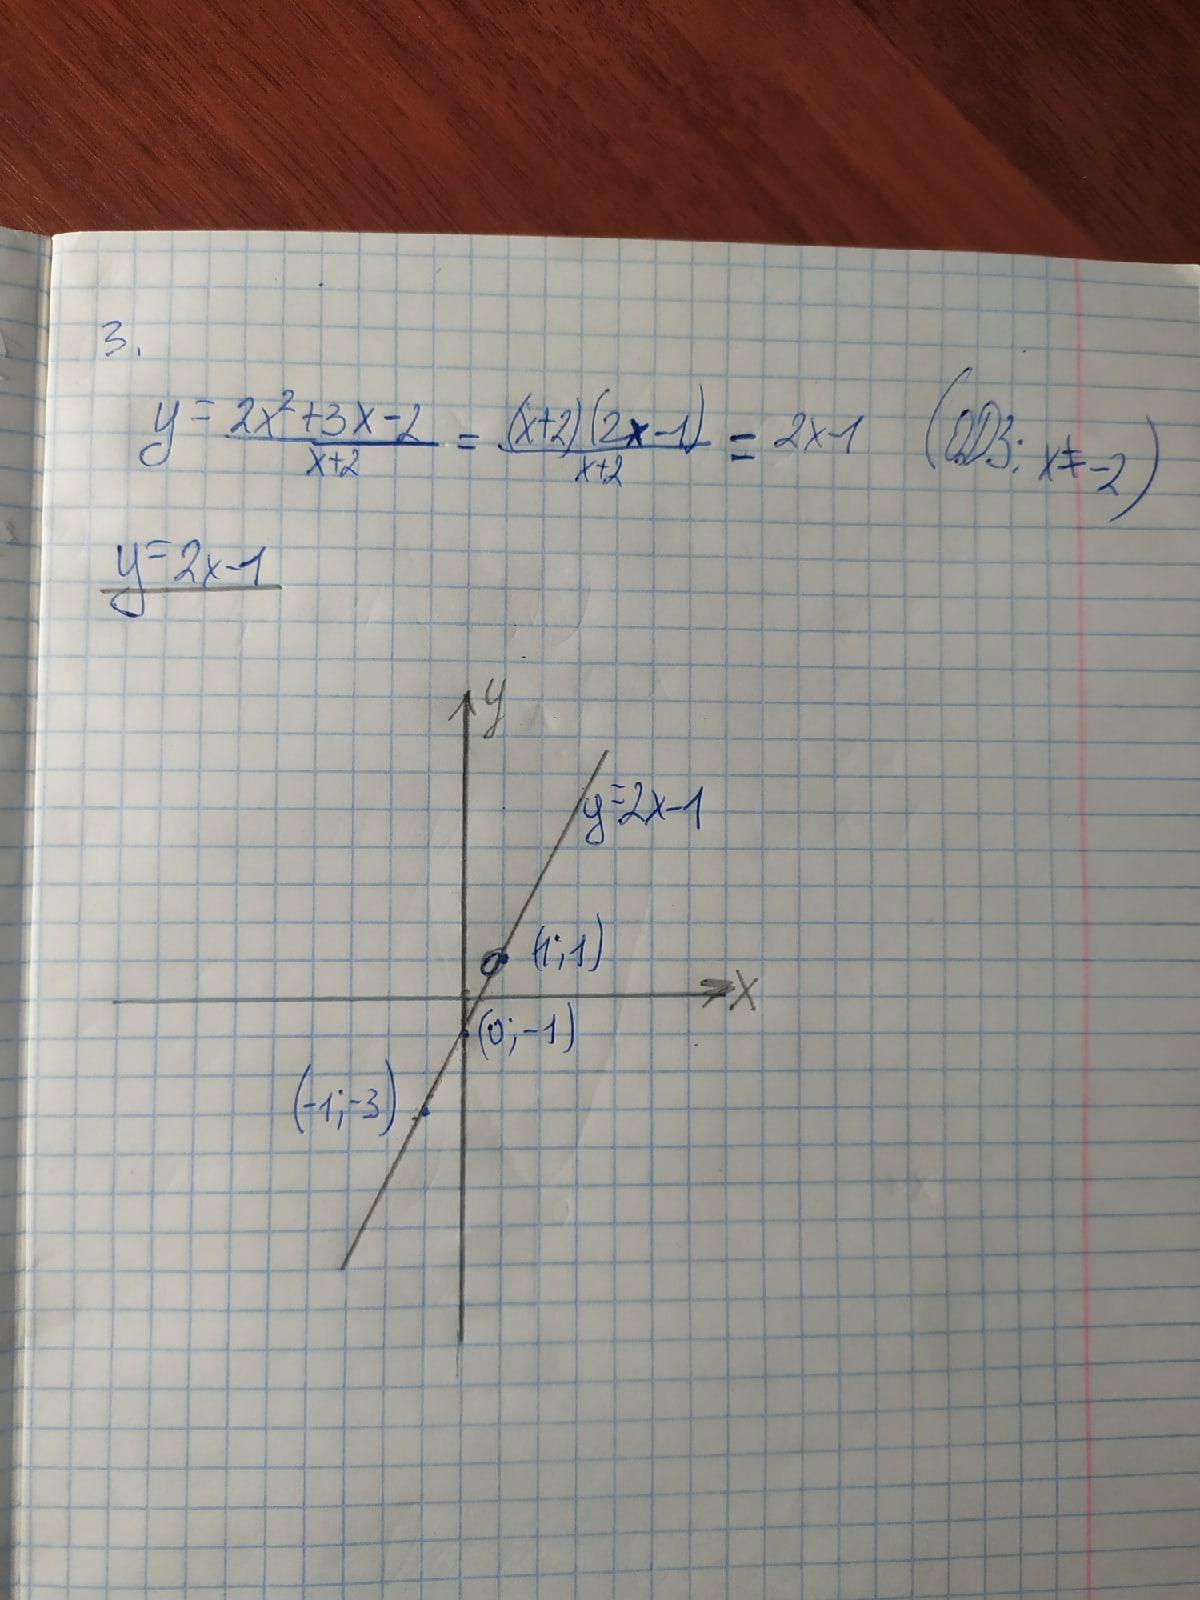 3.
y = 2x²+3x-2/x+2 = (x+2)(2x-1)/x+2 = 2x-1 (ОДЗ: x≠-2)
y=2x-1
y
y=2x-1
(1;1)
x
(0;-1)
(-1;-3)